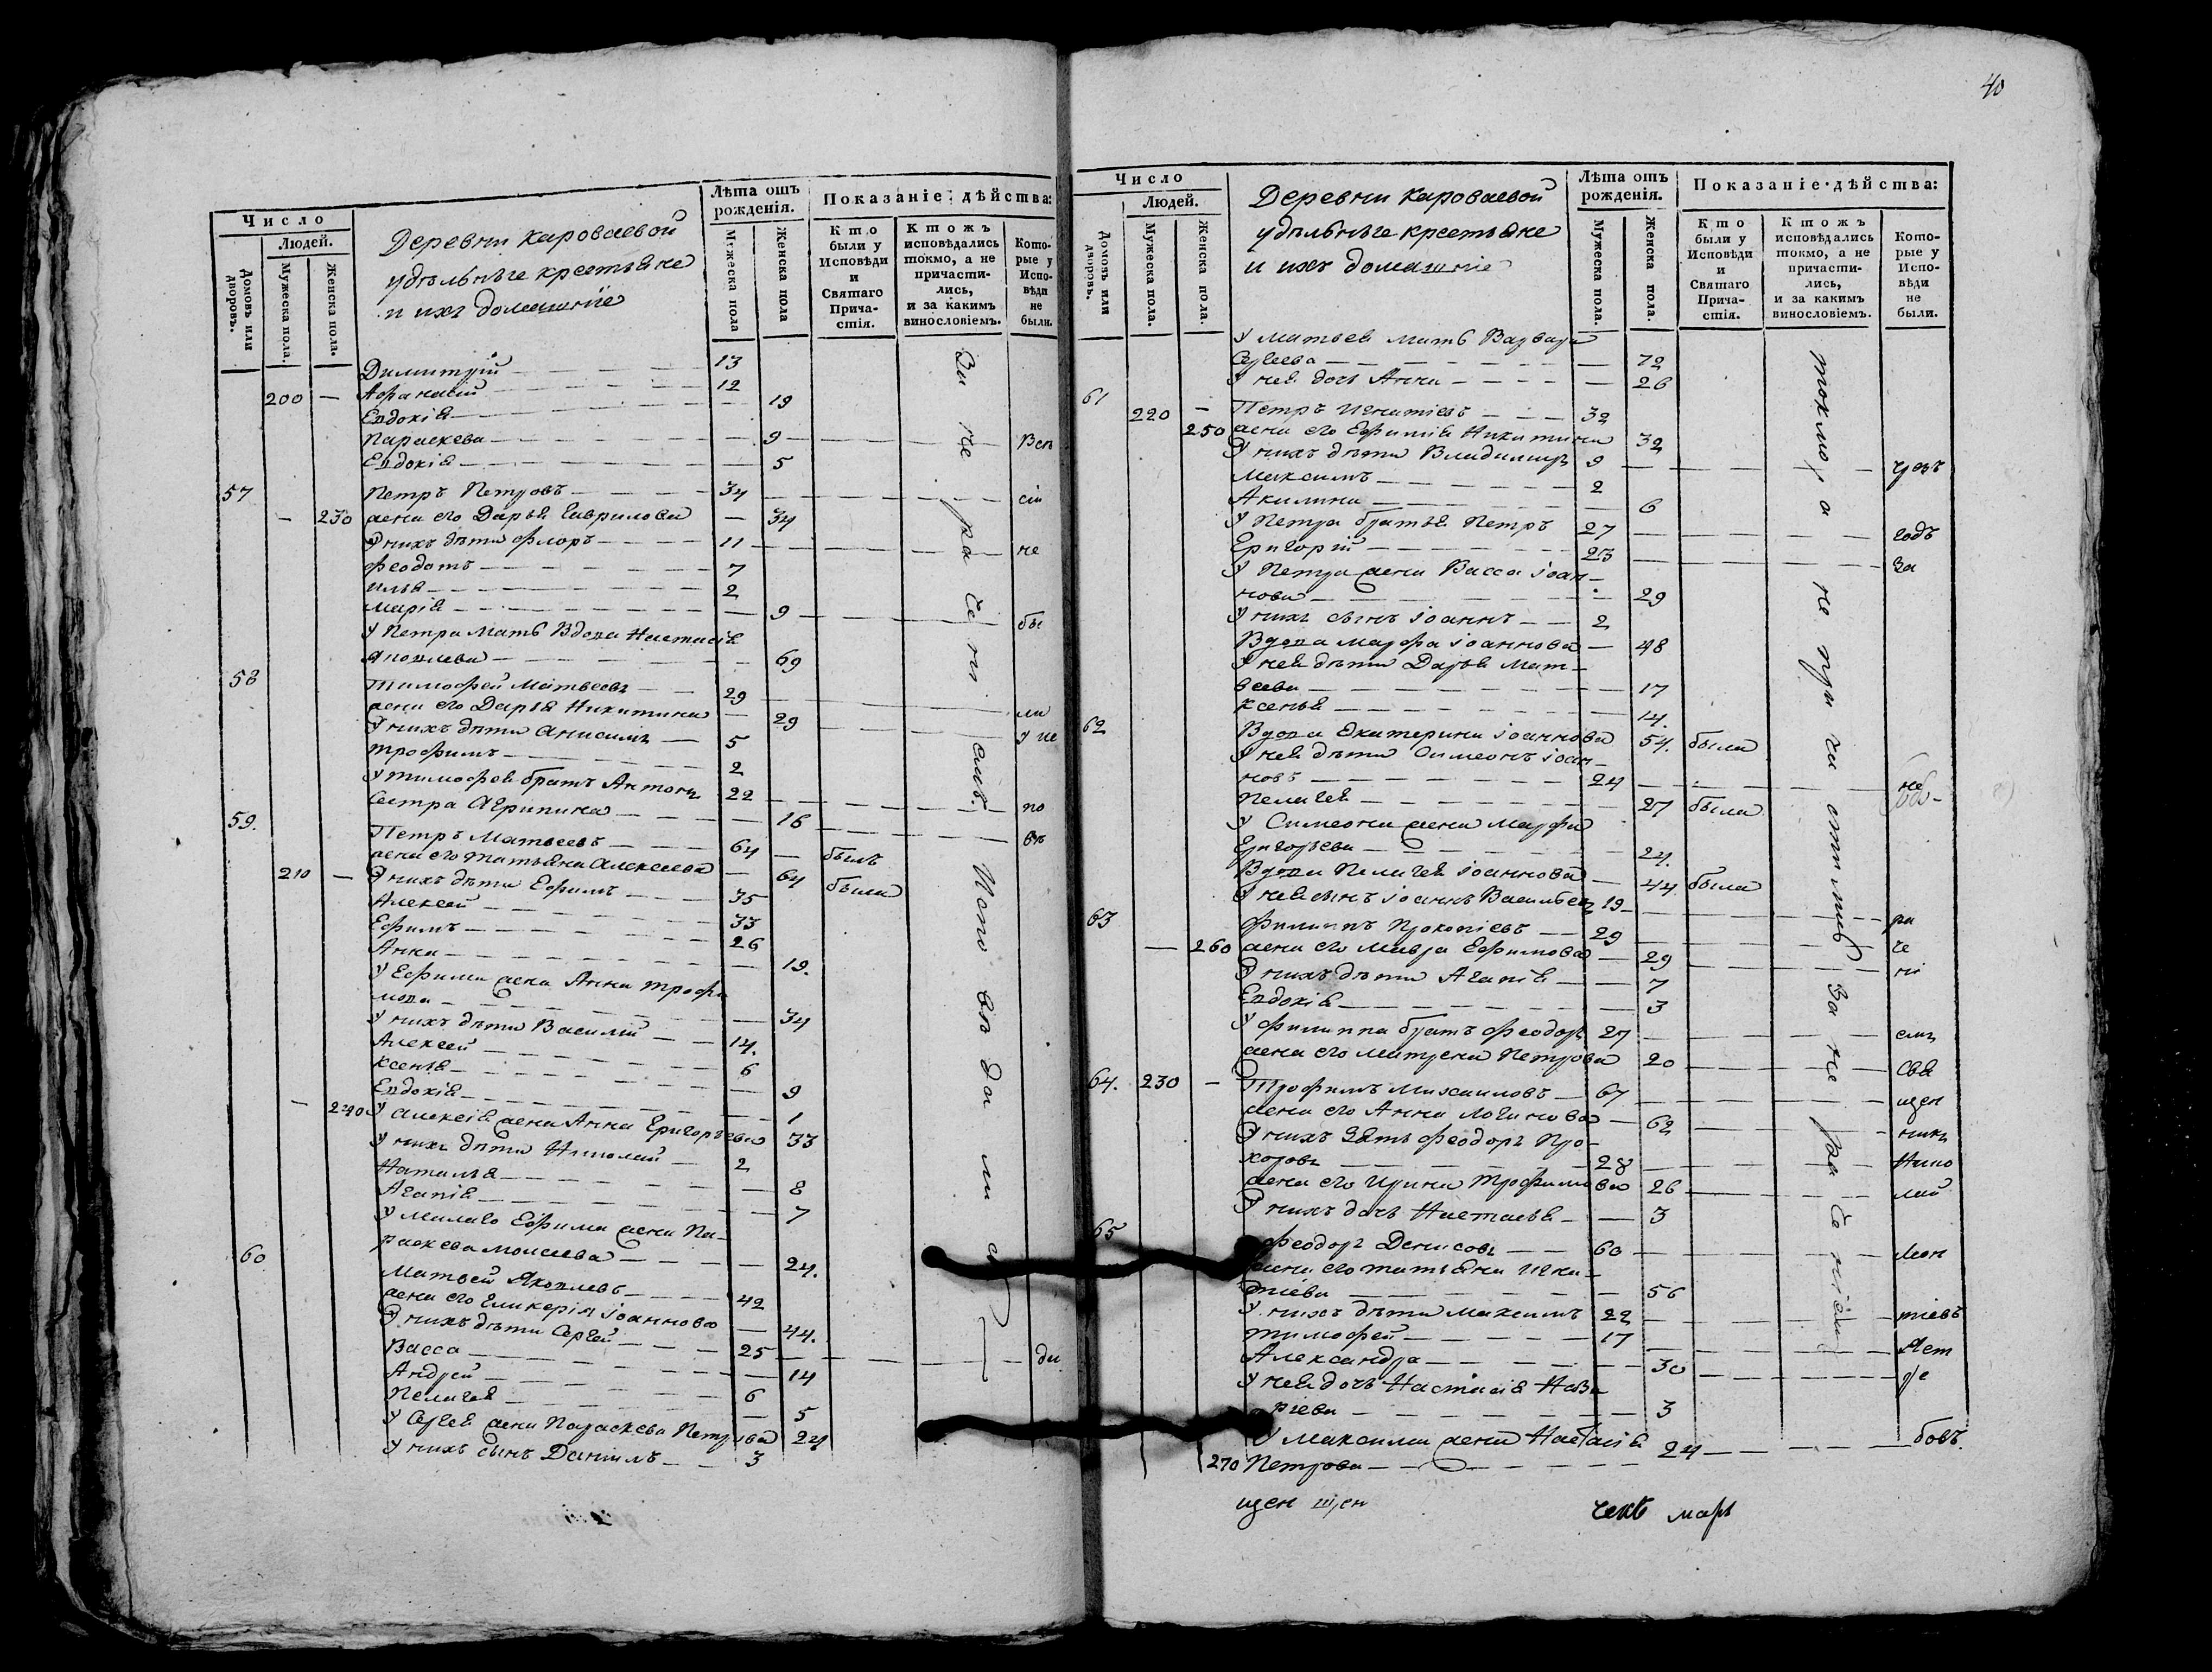 40
Число
Людей.
Домовъ или дворовъ.
Мужеска пола.
Женска пола.
Деревни Короваевой
удѣльныѣ крестьяне
и ихъ домашніе
Лѣта отъ рожденія.
Мужеска пола
Женска пола
Показаніе дѣйства:
Кто были у Исповѣди и Святаго Причастія.
Ктожъ исповѣдались токмо, а не причастились, и за какимъ винословіемъ.
Которые у Исповѣди не были.
Димитрій 13
200 — Афанасій 12
Евдокія — 19
Параскева — 9 Всѣ
Евдокія — 5
57 Петръ Петровъ 34 сіи
— 230 жена его Дарья Гаврилова — 34
У нихъ дѣти Флоръ 11 не
Феодотъ 7
Илья 2
Марія — 9 бы
У Петра мать Вдова Настасія
Яковлева — 69
58 Тимофей Матвеевъ 29 ли
жена его Дарья Никитина — 29 у ис
У нихъ дѣти Анисимъ 5
Трофимъ 2
У Тимофея братъ Антонъ 22 по
Сестра Агрипина — 16 вѣ
59. Петръ Матвеевъ 64 — былъ
жена его Татьяна Алексеева — 64 была
210 — У нихъ дѣти Ефимъ 35
Алексей 33
Ефимъ 26
Анна — 19.
У Ефима жена Анна Трофи
мова — 34
У нихъ дѣти Василій 14.
Алексей 6
Ксенья — 9
Евдокія — 1
— 240 У Алексія жена Анна Григорьева 33
У нихъ дѣти Николай 2
Наталья — 8
Агапія — 7
У малаго Ефима жена Па-
раскева Моисеева — 24.
60 Матвей Яковлевъ 42
жена его Гликерія Іоаннова — 44.
У нихъ дѣти Сергей 25 ди
Васса — 14
Андрей 6
Пелагея — 5
У Сергея жена Параскева Петрова 24
У нихъ сынъ Даніилъ 3
За не ра че ни емъ. Испо вѣ да ли сь
Число
Людей.
Домовъ или дворовъ.
Мужеска пола.
Женска пола.
Деревни Короваевой
удѣльныѣ крестьяне
и ихъ домашніе
Лѣта отъ рожденія.
Мужеска пола.
Женска пола.
Показаніе дѣйства:
Кто были у Исповѣди и Святаго Причастія.
Ктожъ исповѣдались токмо, а не причастились, и за какимъ винословіемъ.
Которые у Исповѣди не были.
У Матвея мать Варвара
Сергеева — 72
У нея дочь Анна — 26
61 220 — Петръ Игнатіевъ 32
250 жена его Ефимія Никитина 32
У нихъ дѣти Владимиръ 9 чрезъ
Максимъ 2
Акилина — 6
У Петра братья Петръ 27 годъ
Григорій 23 За
У Петра жена Васса Іоан-
нова — 29
У нихъ сынъ Іоаннъ 2
Вдова Марфа Іоаннова — 48
У нея дѣти Дарья Мат-
веева — 17
Ксенья — 14.
62 Вдова Екатерина Іоаннова 54. была
У нея дѣти Симеонъ Іоан-
новъ 24 не
Пелагея — 27 была
У Симеона жена Марфа
Григорьева — 24.
Вдова Пелагея Іоаннова — 44 была
У нея сынъ Іоаннъ Васильевъ 19 ра
63 Филиппъ Прокопіевъ 29 че
— 260 жена его Мавра Ефимова — 29 ні
У нихъ дѣти Агапія — 7
Евдокія — 3
У Филиппа братъ Феодоръ 27 емъ
жена его Матрена Петрова 20 Свя
64. 230 — Трофимъ Михаиловъ 67 щен
жена его Анна Логинова — 62 никъ
У нихъ зять Феодоръ Про-
хоровъ 28 Нико
жена его Ирина Трофимова 26 лай
У нихъ дочь Настасья — 3
65 Феодоръ Денисовъ 60 Леон
жена его Татьяна Игна-
тіева — 56
У нихъ дѣти Максимъ 22 тіевъ
Тимофей 17 Яст
Александра — 30 ре
У нея дочь Настасія Наза
ріева — 3
У Максима жена Настасія 24 бовъ.
270 Петрова
токмо, а не при ча стились За не ра че ніемъ
щен щен